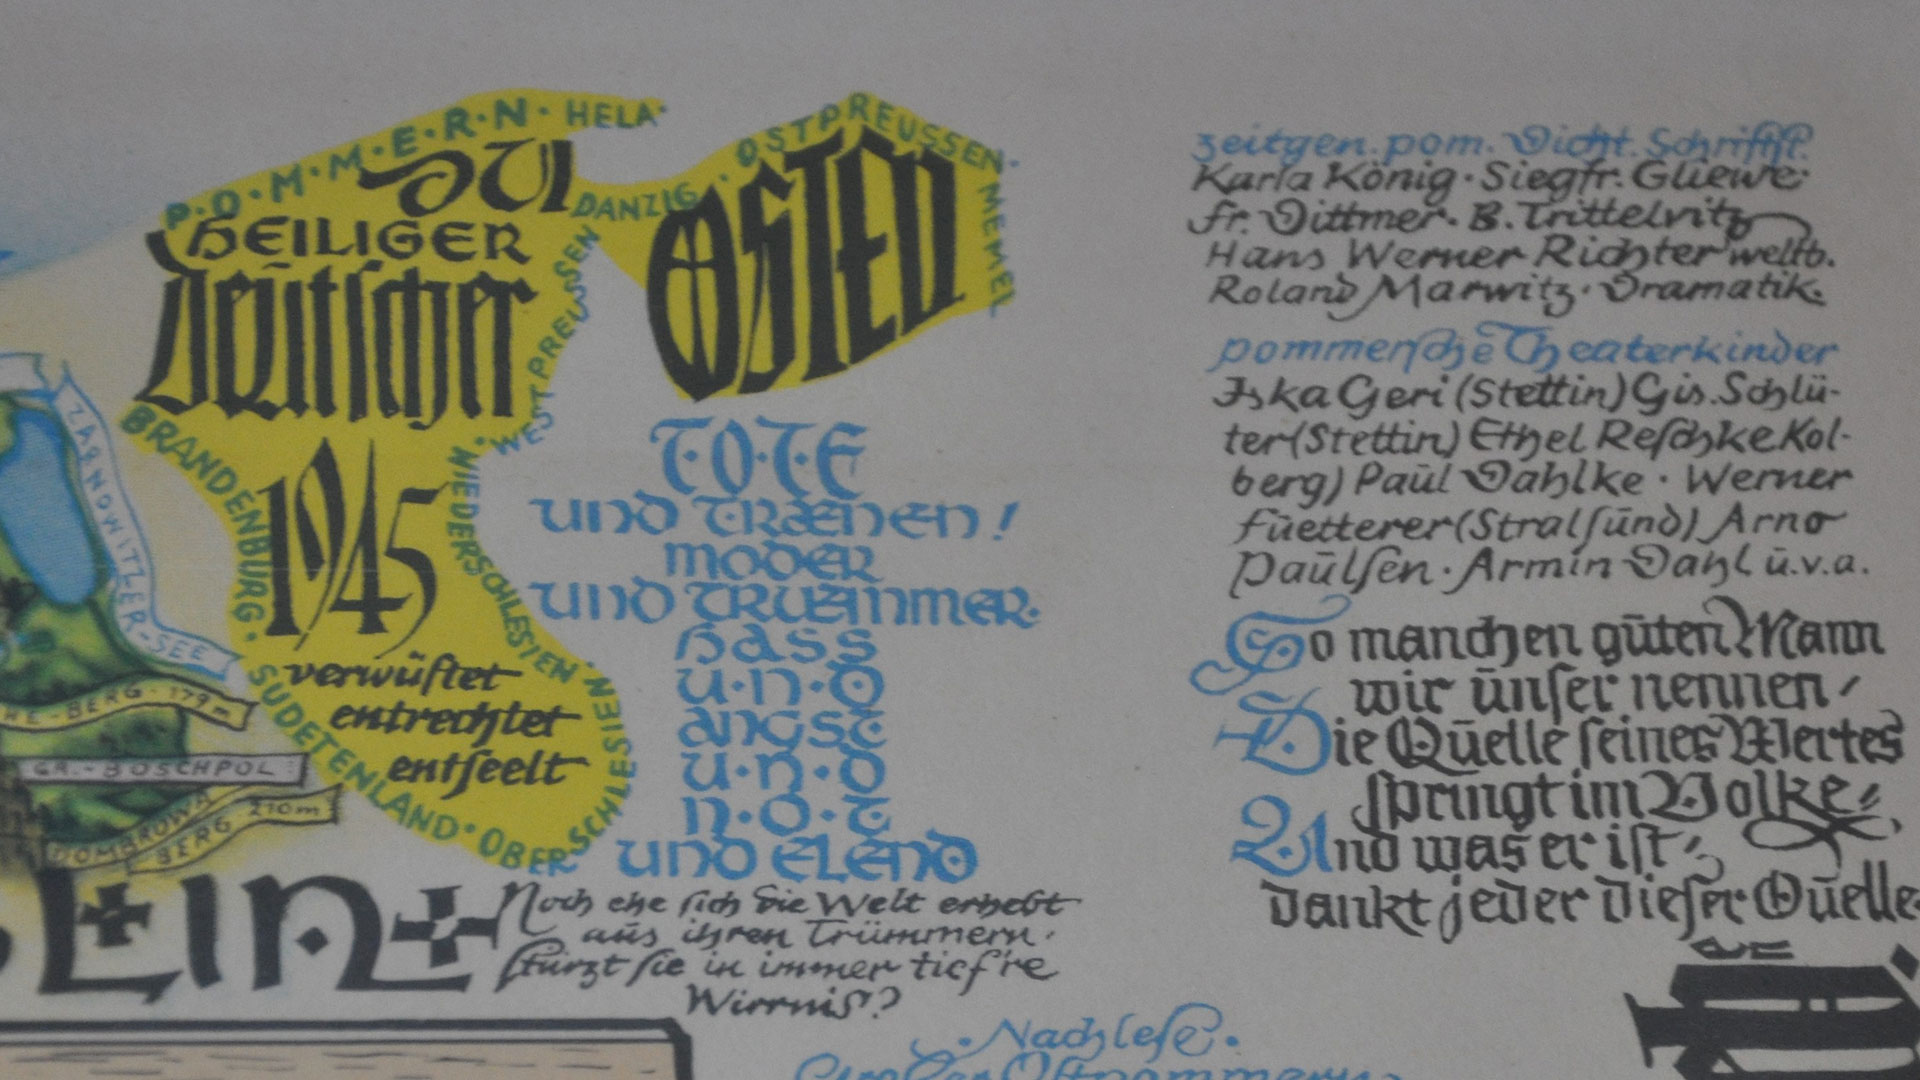 P·O·M·M·E·R·N· HELA·
DANZIG · OSTPREUSSEN· MEMEL
DU
HEILIGER
Deutscher
OSTEN
1945
verwüstet
entrechtet
entseelt
BRANDENBURG· SUDETENLAND· OBERSCHLESIEN
·WESTPREUSSEN
NIEDERSCHLESIEN
T·O·T·E
und TRÆNEN!
MODER
und TRUEMMER·
HASS
U·N·D
ANGST
U·N·D
N·O·T
UND ELEND
ZARNOWITZER-SEE
BERG·179m
GR.-BOSCHPOL
DOMBROWA
BERG 210m
Noch ehe sich die Welt erhebt
aus ihren Trümmern·
stürzt sie in immer tief're
Wirrnis?
·Nachlese·
zeitgen. pom. Dicht. Schriftst.
Karla König·Siegfr. Gliewe·
Fr. Dittmer·B. Trittelvitz
Hans Werner Richter weltb.
Roland Marwitz·Dramatik.
pommersche Theaterkinder
Iska Geri (Stettin) Gis. Schlü-
ter (Stettin) Ethel Reschke Kol-
berg) Paul Dahlke · Werner
Füetterer (Stralsund) Arno
Paulsen·Armin Dahl u.v.a.
So manchen guten Mann
wir unser nennen,
Die Quelle seines Wertes
springt im Volke,
Und was er ist,
dankt jeder dieser Quelle.